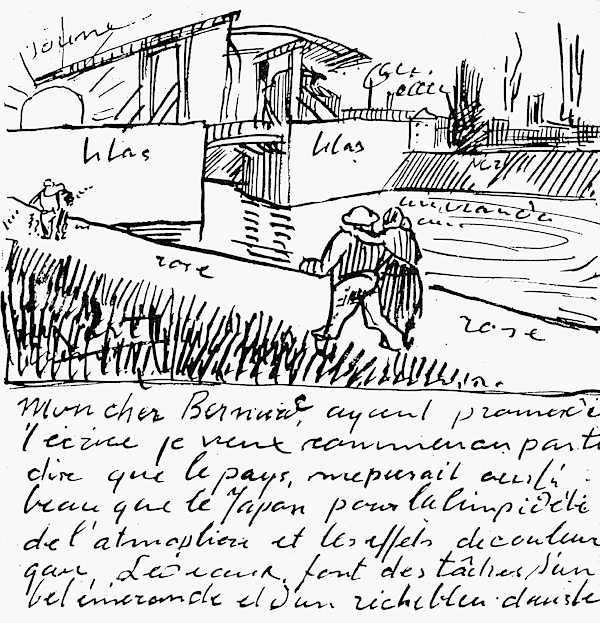 jaune
lilas
lilas
rose
rose
Mon cher Bernard, ayant promis
t'écrire je veux commencer par te
dire que le pays me parait aussi
beau que le Japon pour la limpidité
de l'atmosphère et les effets de couleur
gaie. Les eaux font des tâches d'un
bel émeraude et d'un riche bleu dans le